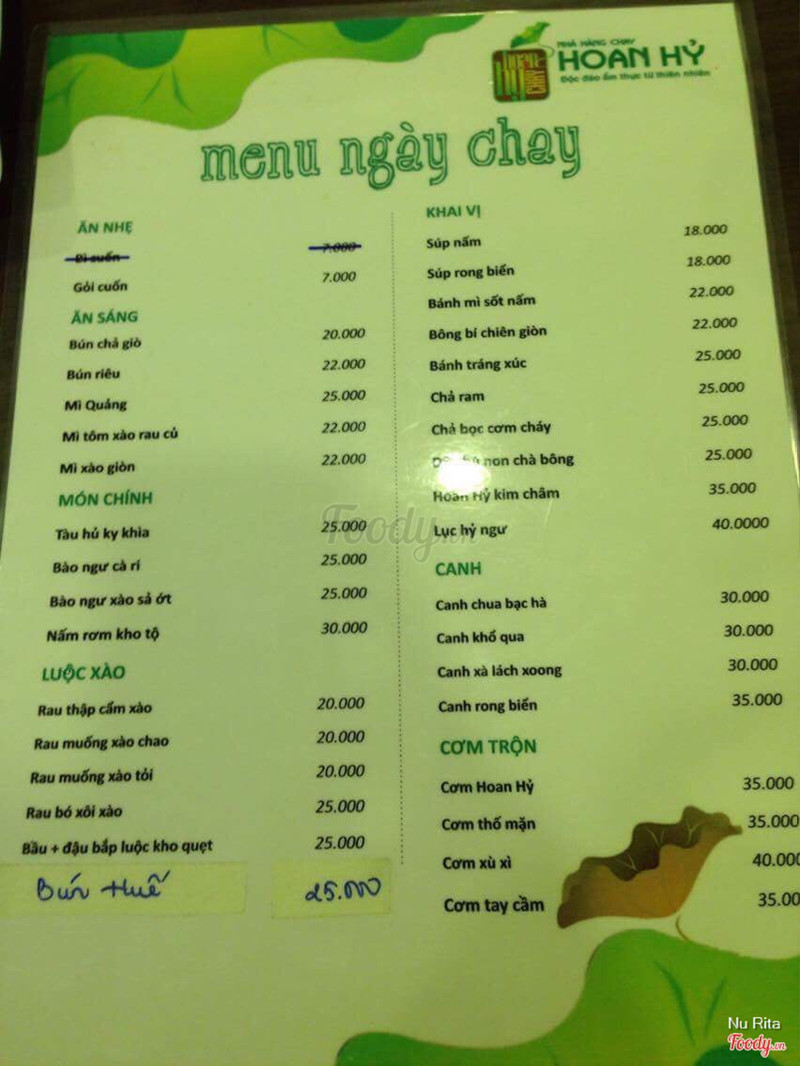 NHÀ HÀNG CHAY
HOAN HỶ
Độc đáo ẩm thực từ thiên nhiên
menu ngày chay
ĂN NHẸ
Bì cuốn 7.000
Gỏi cuốn 7.000
ĂN SÁNG
Bún chả giò 20.000
Bún riêu 22.000
Mì Quảng 25.000
Mì tôm xào rau củ 22.000
Mì xào giòn 22.000
MÓN CHÍNH
Tàu hủ ky khìa 25.000
Bào ngư cà rí 25.000
Bào ngư xào sả ớt 25.000
Nấm rơm kho tộ 30.000
LUỘC XÀO
Rau thập cẩm xào 20.000
Rau muống xào chao 20.000
Rau muống xào tỏi 20.000
Rau bó xôi xào 25.000
Bầu + đậu bắp luộc kho quẹt 25.000
Bún Huế 25.000
KHAI VỊ
Súp nấm 18.000
Súp rong biển 18.000
Bánh mì sốt nấm 22.000
Bông bí chiên giòn 22.000
Bánh tráng xúc 25.000
Chả ram 25.000
Chả bọc cơm cháy 25.000
non chà bông 25.000
Hoan Hỷ kim châm 35.000
Lục hỷ ngư 40.0000
CANH
Canh chua bạc hà 30.000
Canh khổ qua 30.000
Canh xà lách xoong 30.000
Canh rong biển 35.000
CƠM TRỘN
Cơm Hoan Hỷ 35.000
Cơm thố mặn 35.000
Cơm xù xì 40.000
Cơm tay cầm 35.00
Foody.vn
Nu Rita
Foody.vn